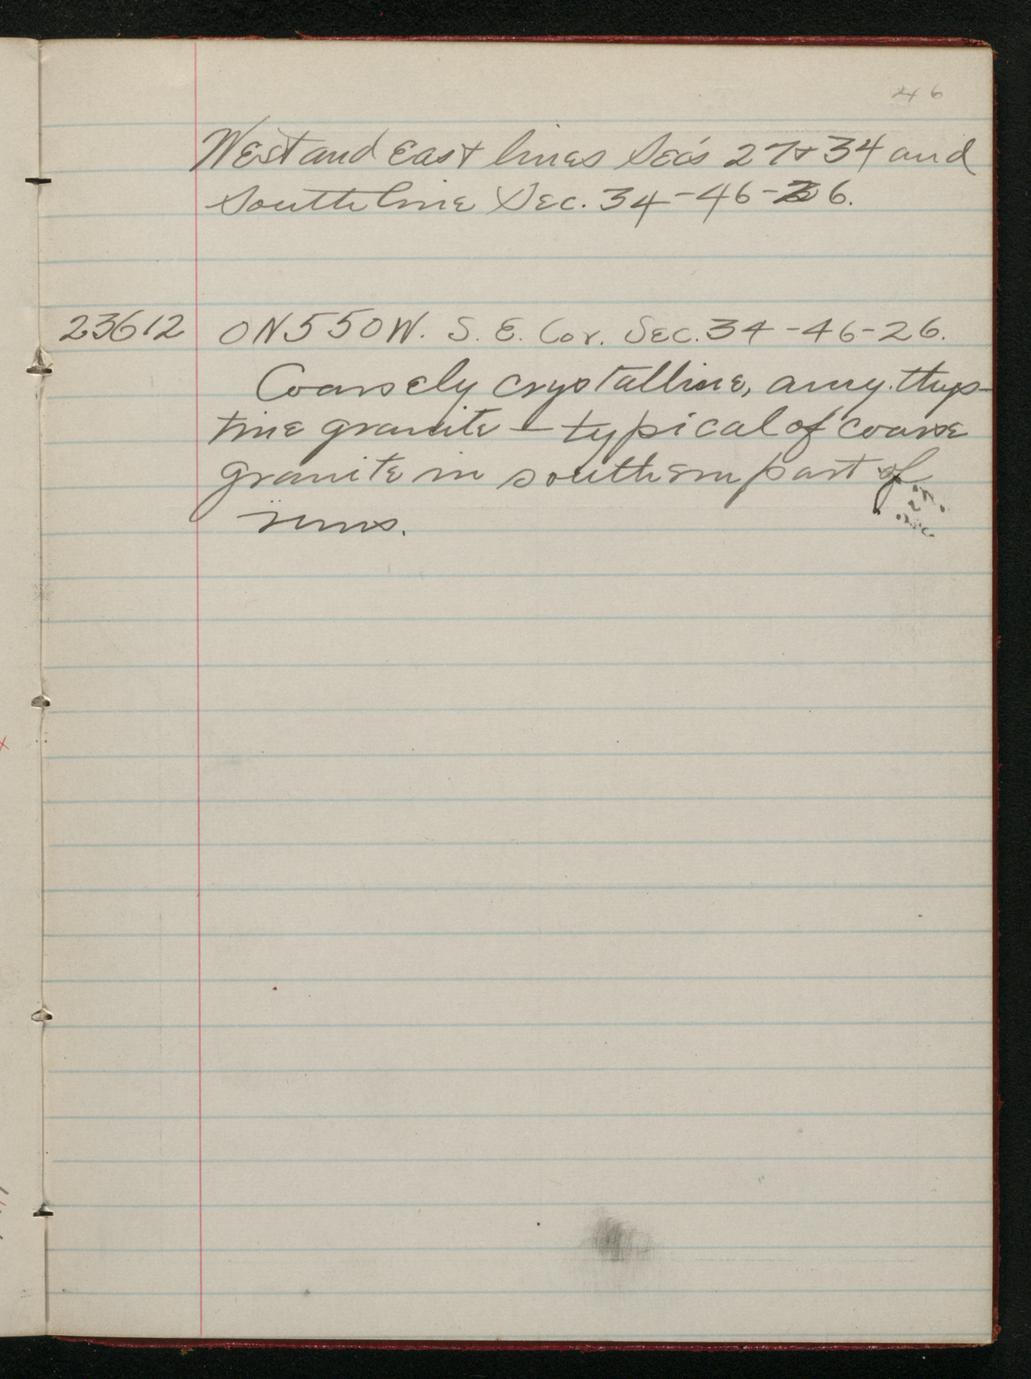 46
West and East lines Sec's 27 & 34 and
South line Sec. 34-46-26.
23612 0N 550W. S. E. Cor. Sec. 34-46-26.
Coarsely crystalline, amythys-
tine granite - typical of coarse
granite in southern part of